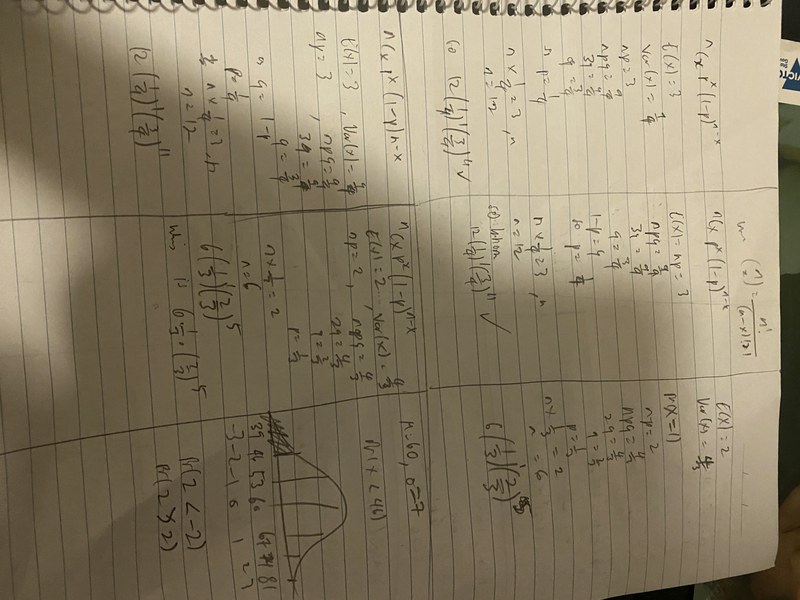 VICTO
nCx pˣ (1-p)ⁿ⁻ˣ
E(x) = 3
np = 3
3q = 9/4
q = 3/4
n × 1/4 = 3
n = 12
12 (1/4)¹ (3/4)¹¹ ✓
nCx pˣ (1-p)ⁿ⁻ˣ
E(x) = 3, Var(x) = 9/4
np = 3, npq = 9/4
3q = 9/4
q = 3/4
q = 1-p
p = 1/4
n = 12
12 (1/4)¹ (3/4)¹¹
nCx pˣ (1-p)ⁿ⁻ˣ
E(x) = np = 3
npq = 9/4
3q = 9/4
q = 3/4
1-p = q
so p = 1/4
n × 1/4 = 3
n = 12
12 (1/4)¹ (3/4)¹¹ ✓
nCx pˣ (1-p)ⁿ⁻ˣ
E(x) = 2, Var(x) = 4/3
np = 2, npq = 4/3
2q = 4/3
q = 2/3
p = 1/3
n × 1/3 = 2
n = 6
6 (1/3)¹ (2/3)⁵
E(X) = 2
Var(x) = 4/3
Pr(X = 1)
np = 2
npq = 4/3
2q = 4/3
q = 2/3
p = 1/3
n × 1/3 = 2
n = 6
6 (1/3)¹ (2/3)
μ = 60, σ = 7
Pr(X < 46)
39 46 53 60 67 74 81
-3 -2 -1 0 1 2 3
Pr(Z < -2)
Pr(Z > 2)